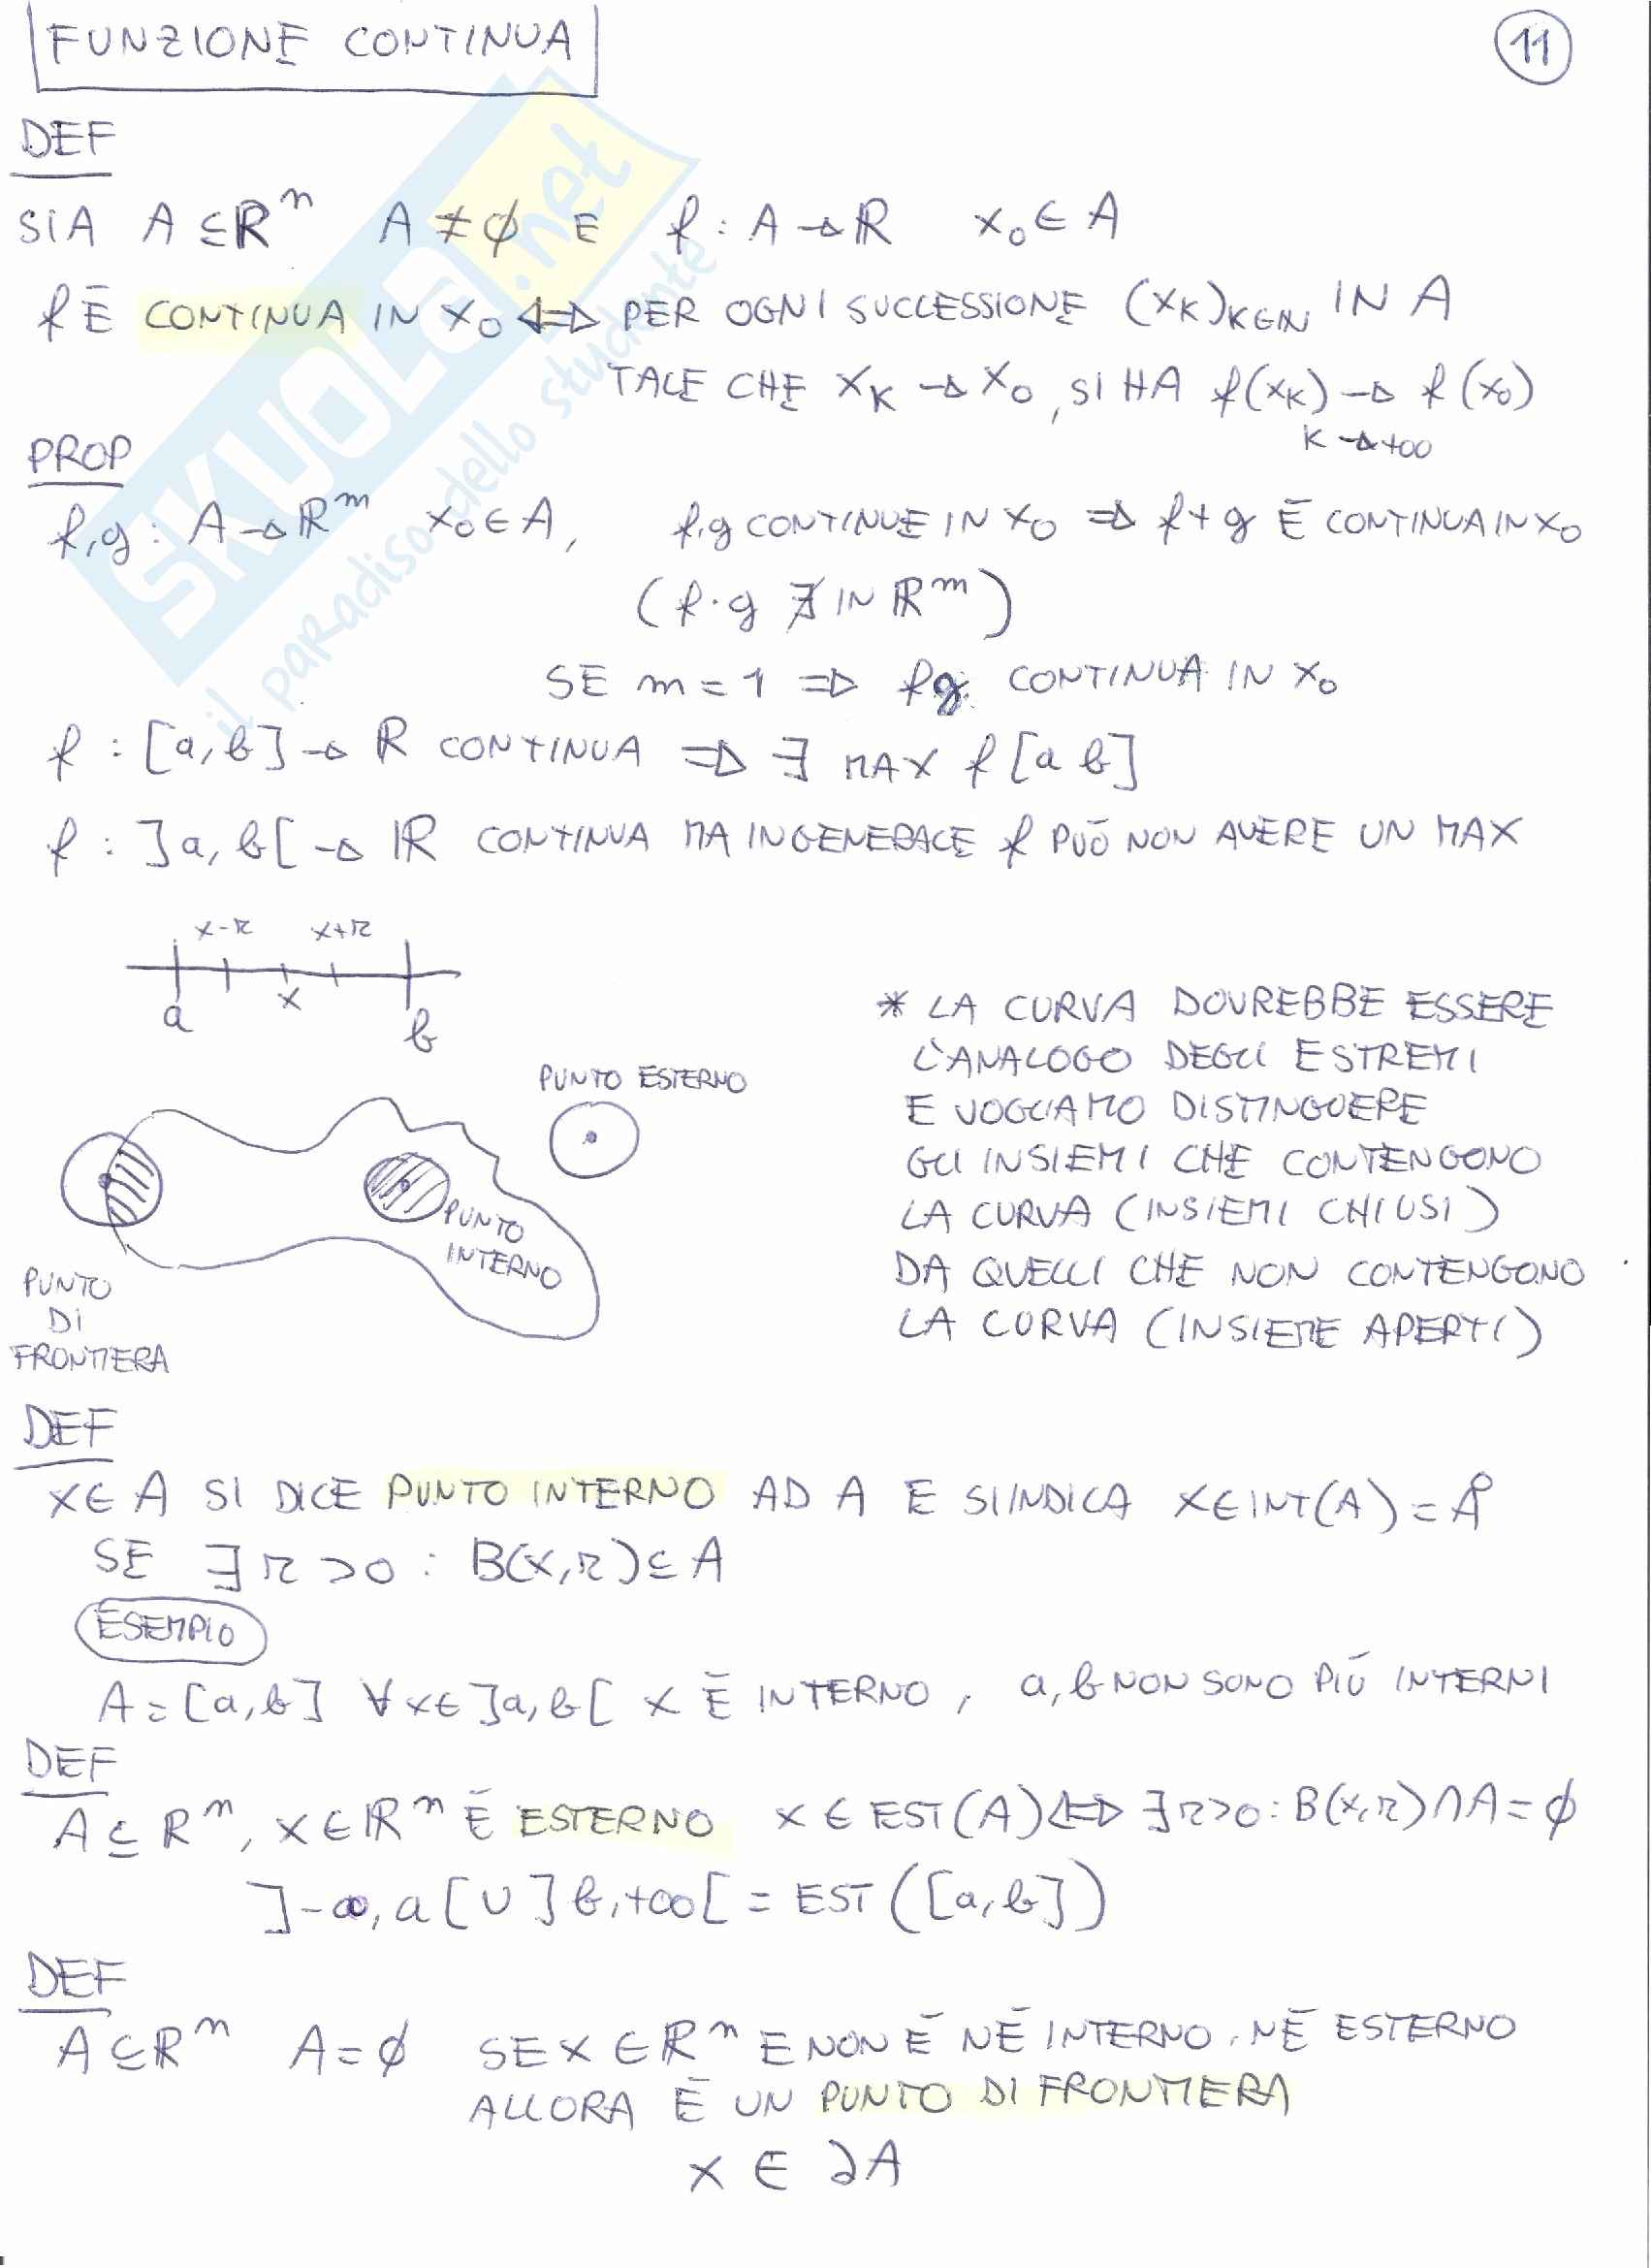 FUNZIONE CONTINUA
11
DEF
SIA A ⊆ ℝⁿ A ≠ ∅ E f : A → ℝ x₀ ∈ A
f È CONTINUA IN x₀ ⇔ PER OGNI SUCCESSIONE (x_K)_{K∈ℕ} IN A
TALE CHE x_K → x₀, SI HA f(x_K) → f(x₀)
K → +∞
PROP
f, g : A → ℝᵐ x₀ ∈ A, f, g CONTINUE IN x₀ ⇒ f + g È CONTINUA IN x₀
(f · g ∄ IN ℝᵐ)
SE m = 1 ⇒ fg CONTINUA IN x₀
f : [a, b] → ℝ CONTINUA ⇒ ∃ MAX f [a b]
f : ]a, b[ → ℝ CONTINUA MA IN GENERALE f PUÒ NON AVERE UN MAX
x-r x+r
a x b
* LA CURVA DOVREBBE ESSERE
L'ANALOGO DEGLI ESTREMI
E VOGLIAMO DISTINGUERE
GLI INSIEMI CHE CONTENGONO
LA CURVA (INSIEMI CHIUSI)
DA QUELLI CHE NON CONTENGONO
LA CURVA (INSIEME APERTI)
PUNTO ESTERNO
PUNTO
INTERNO
PUNTO
DI
FRONTIERA
DEF
x ∈ A SI DICE PUNTO INTERNO AD A E SI INDICA x ∈ INT(A) = Å
SE ∃ r > 0 : B(x, r) ⊆ A
ESEMPIO
A = [a, b] ∀ x ∈ ]a, b[ x È INTERNO, a, b NON SONO PIÙ INTERNI
DEF
A ⊆ ℝⁿ, x ∈ ℝⁿ È ESTERNO x ∈ EST(A) ⇔ ∃ r > 0 : B(x, r) ∩ A = ∅
]-∞, a[ ∪ ]b, +∞[ = EST([a, b])
DEF
A ⊆ ℝⁿ A = ∅ SE x ∈ ℝⁿ E NON È NÉ INTERNO, NÉ ESTERNO
ALLORA È UN PUNTO DI FRONTIERA
x ∈ ∂A
SKUOLA.net
il paradiso dello studente